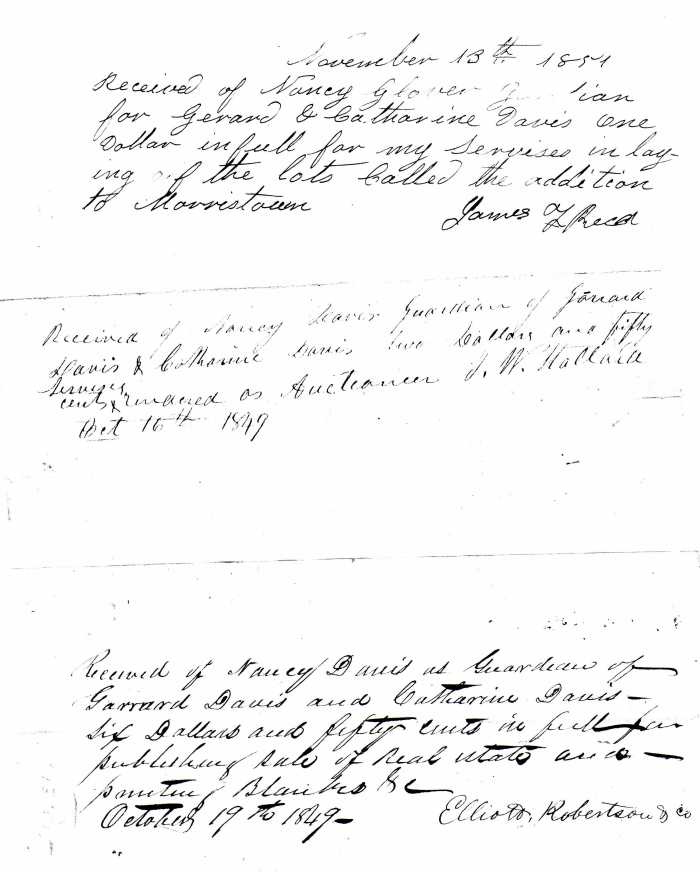 November 13th 1851
Received of Nancy Glover Guardian
for Gerard & Catharine Davis one
Dollar in full for my Servises in lay-
ing of the lots Called the addition
to Morristown
James L Reed
Received of Nancy Davis Guardian of Garrard
Davis & Catharine Davis two Dollars and fifty
Servises
cents & rendered as Auctioneer J. W. Hallaid
Oct 16th 1849
Received of Nancy Davis as Guardian of
Garrard Davis and Catharine Davis
Six Dollars and fifty cents in full for
publishing sale of real estate and
printing Blanks &c
October 19th 1849
Elliott, Robertson & co